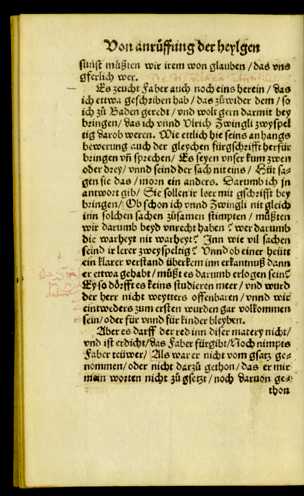 Von anrüffung der heylgen
sunst müßten wir irem won glauben / das vns
gferlich wer.
Es zeucht Faber auch noch eins herein / das
ich ettwa geschriben hab / das zůwider dem / so
ich zů Baden geredt / vnd wolt gern darmit bey
bringen / das ich vnnd Vlrich Zwingli zwyspel
tig darob weren. Wie ettlich hie seins anhangs
bewerung auch der gleychen fürgschrifft herfür
bringen vñ sprechen / Es seyen vnser kum zwen
oder drey / vnnd seind der sach nit eins / Hüt sa-
gen sie das / morn ein anders. Darumb ich jn
antwort gib / Sie sollen ir leer mit gschrifft bey
bringen / Ob schon ich vnnd Zwingli nit gleich
inn solchen sachen zůsamen stimpten / müßten
wir darumb beyd vnrecht haben? wer darumb
die warheyt nit warheyt? Inn wie vil sachen
seind ir lerer zweyspeltig? Vnnd ob einer heütt
ein klarer verstand überkem im erkantnuß dann
er ettwa gehabt / müßt es darumb erlogen sein?
Ey so dörfft es keins studieren meer / vnd wurd
der herr nicht weytters offenbaren / vnnd wir
eintweders zum ersten wurden gar volkommen
sein / oder für vnnd für kinder bleyben.
Aber es darff der red inn diser matery nicht /
vnd ist erdicht / das Faber fürgibt / Noch nimpts
Faber teüwer / Als war er nicht vom gsatz ge-
nommen / oder nicht darzů gethon / das er mir
mein worten nicht zů gsetzt / noch daruon ge-
thon